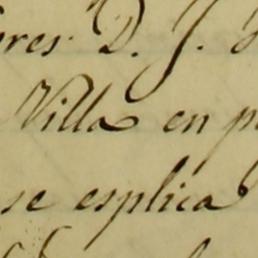 D. J.
Villa en
se esplica